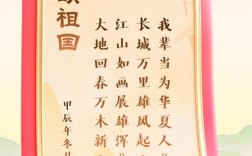 祖国
大地回春万木新
江山如画展雄浑。
长城万里雄风起
我辈当为华夏人。
甲辰年冬